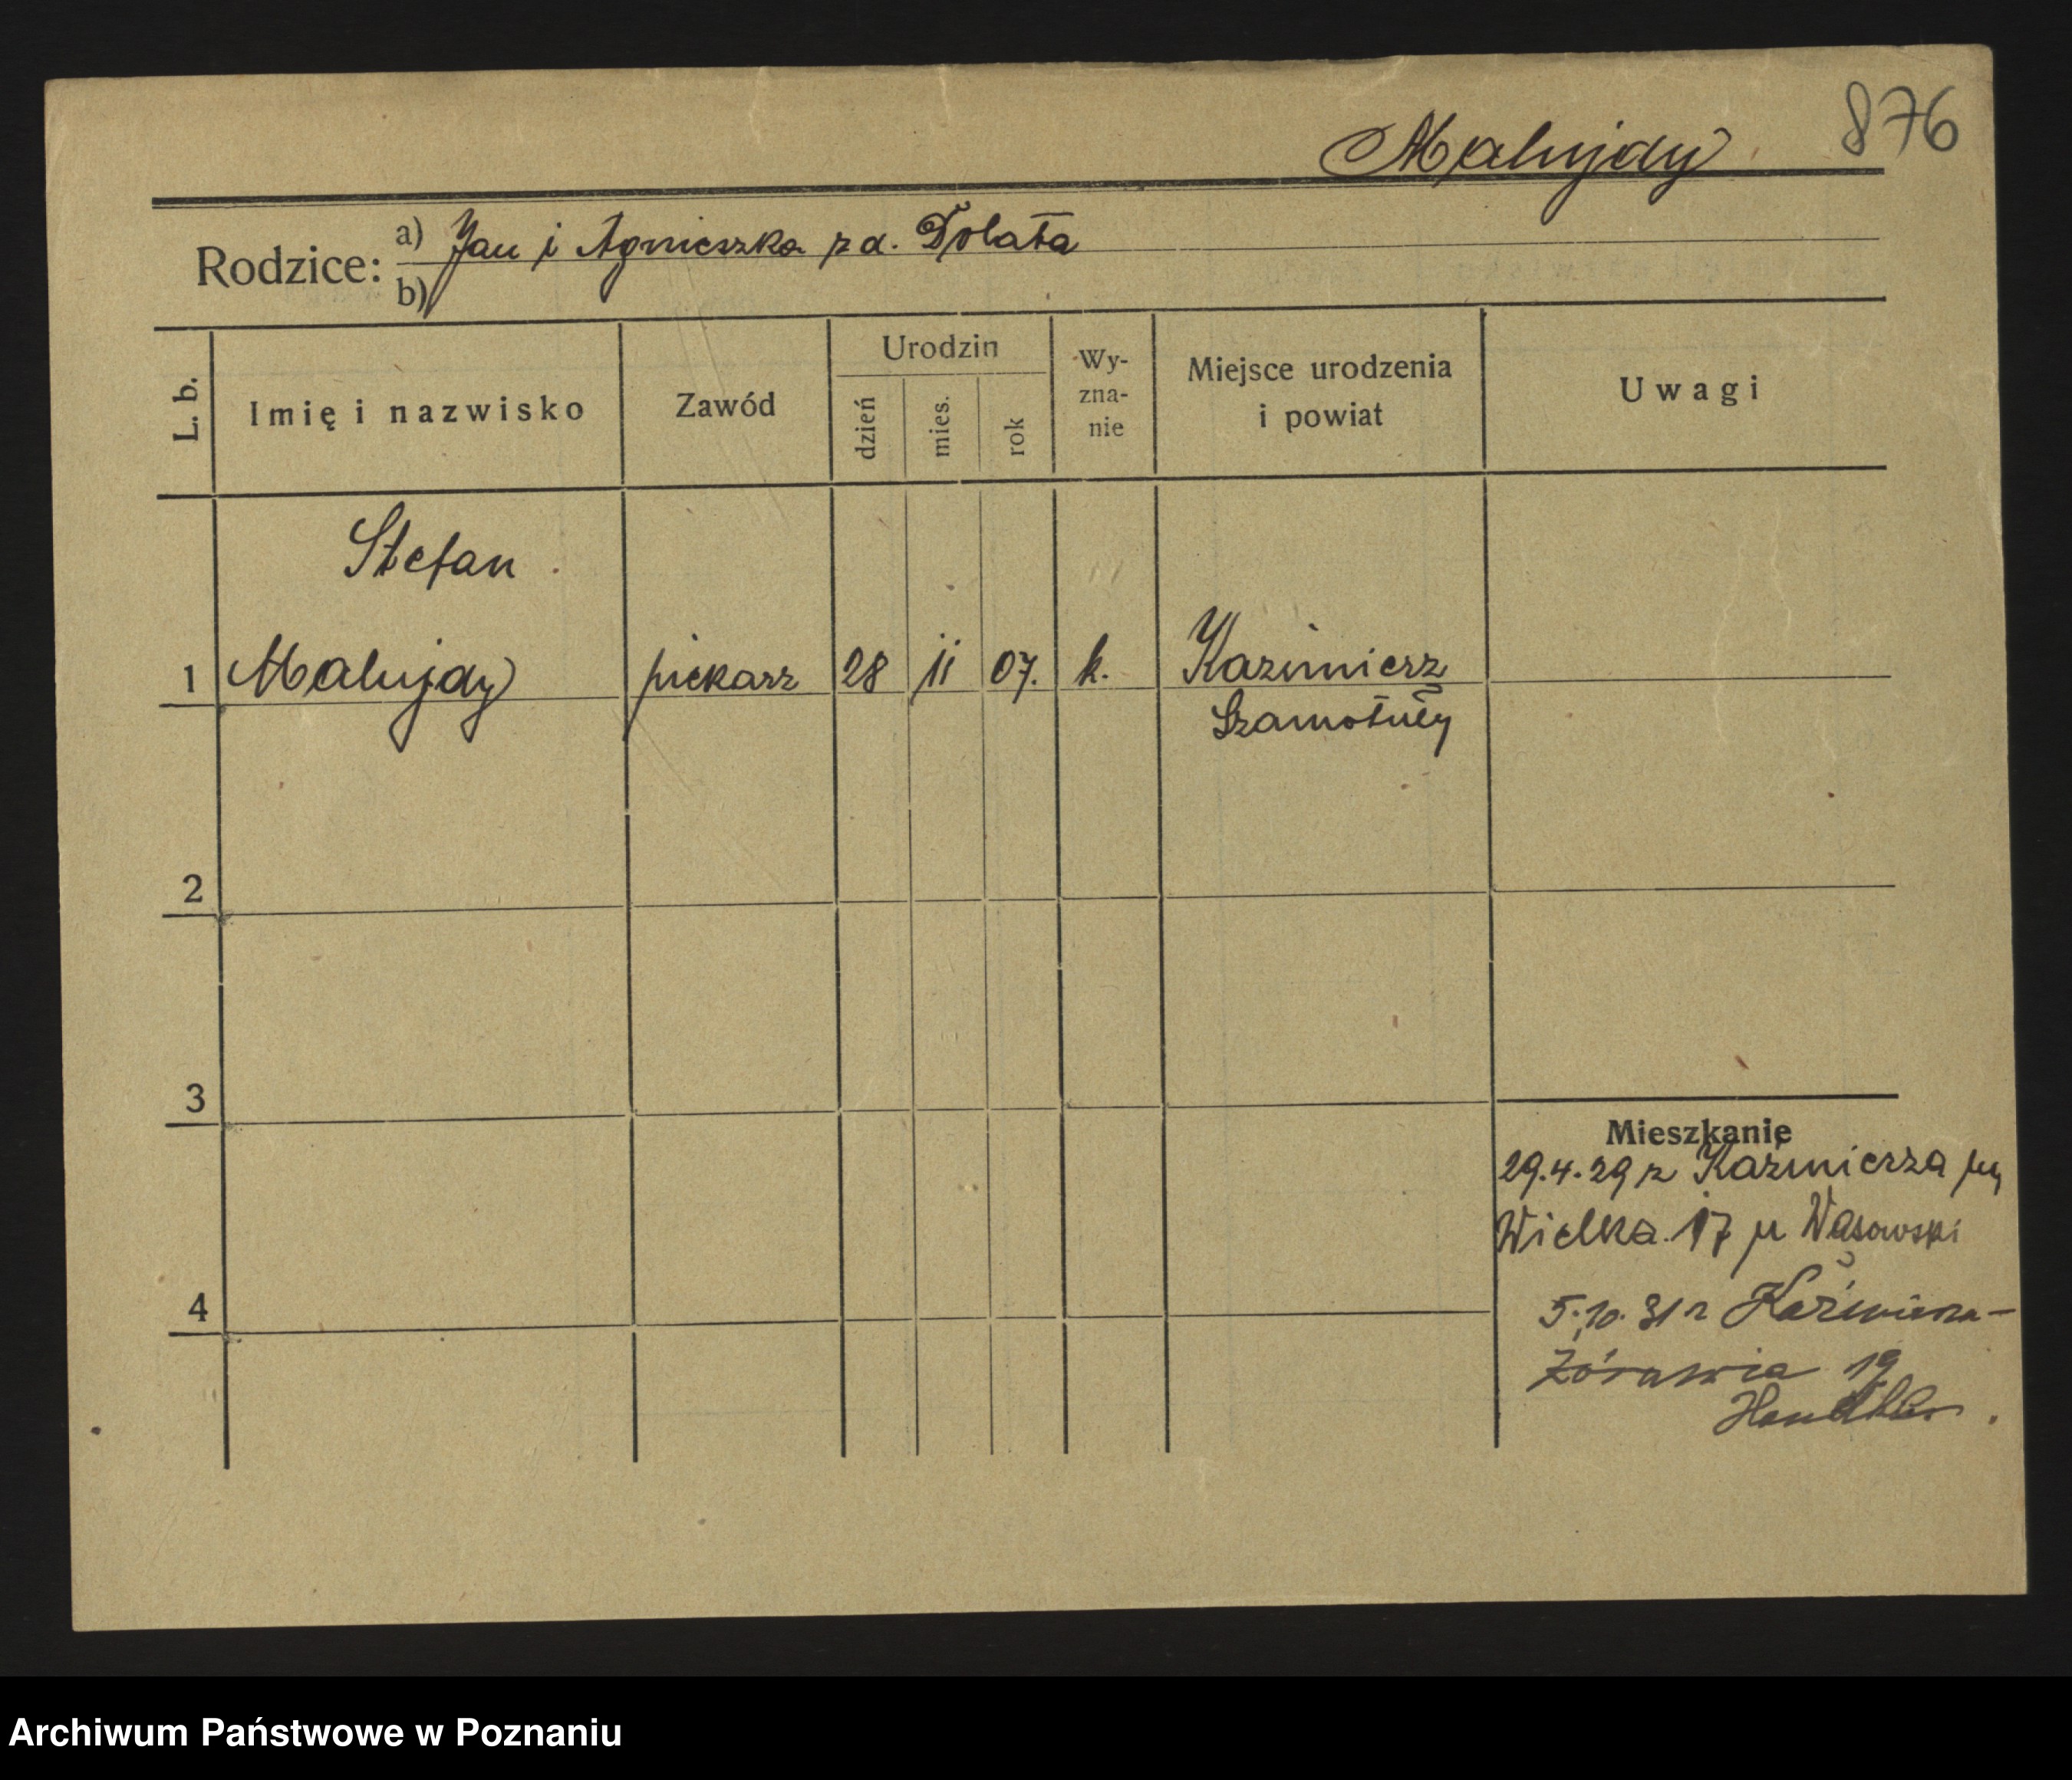 876
Malujdy
Rodzice: a) Jan i Agnieszka z d. Dolata
b)
L. b.
Imię i nazwisko
Zawód
Urodzin
dzień
mies.
rok
Wy-
zna-
nie
Miejsce urodzenia
i powiat
Uwagi
Stefan
1 Malujdy piekarz 28 11 07. k. Kazimierz
Szamotuły
2
3
4
Mieszkanie
29.4.29 z Kaźmierza
Wielka 17 u Wąsowski
5.10.31 z Kaźmierza -
Żórawia 19
Archiwum Państwowe w Poznaniu